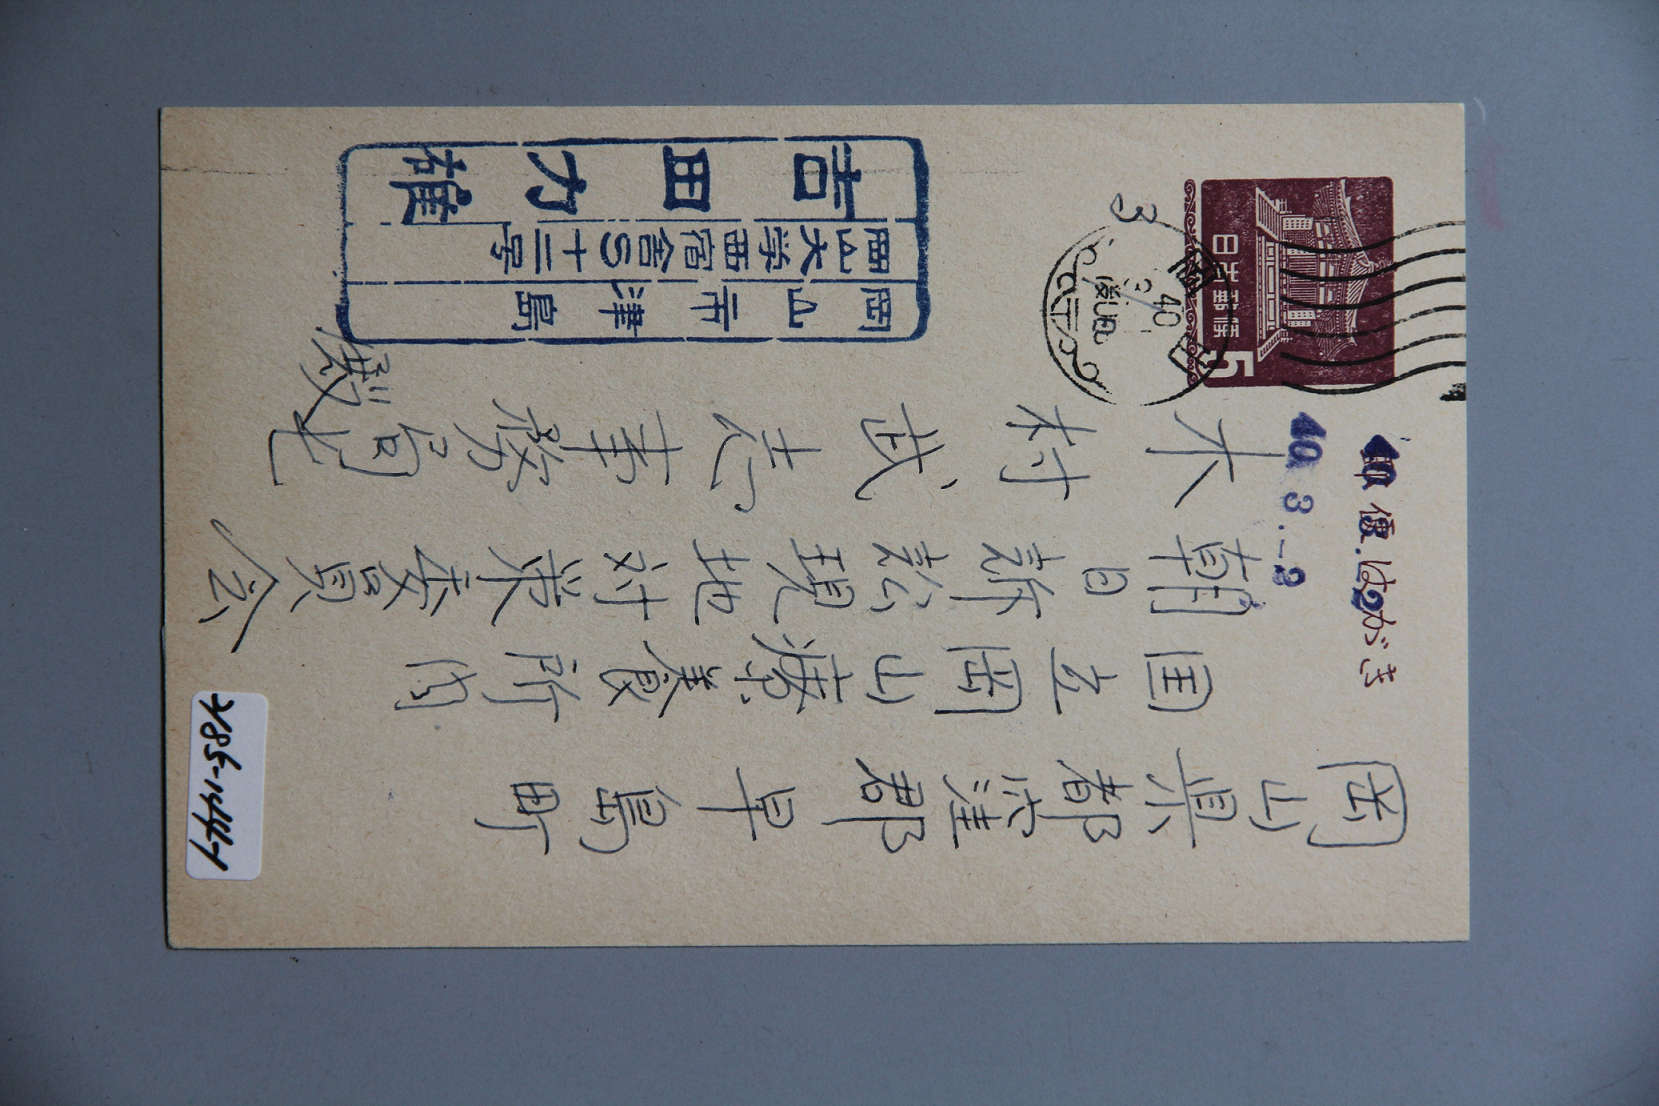 郵便はがき
日本郵便
5
40 3.-2
岡山県都窪郡早島町
国立岡山療養所内
朝日訴訟現地対策委員会
木村武志事務局長殿
岡山市津島
岡山大学西宿舎S十二号
吉田力
K85-1441-1